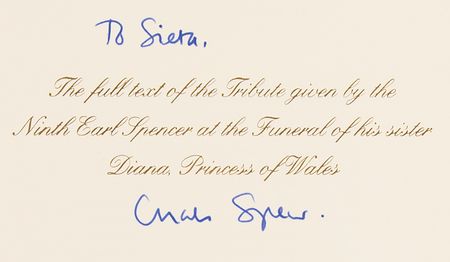 To Sieta.
The full text of the Tribute given by the
Ninth Earl Spencer at the Funeral of his sister
Diana, Princess of Wales
Charles Spencer.